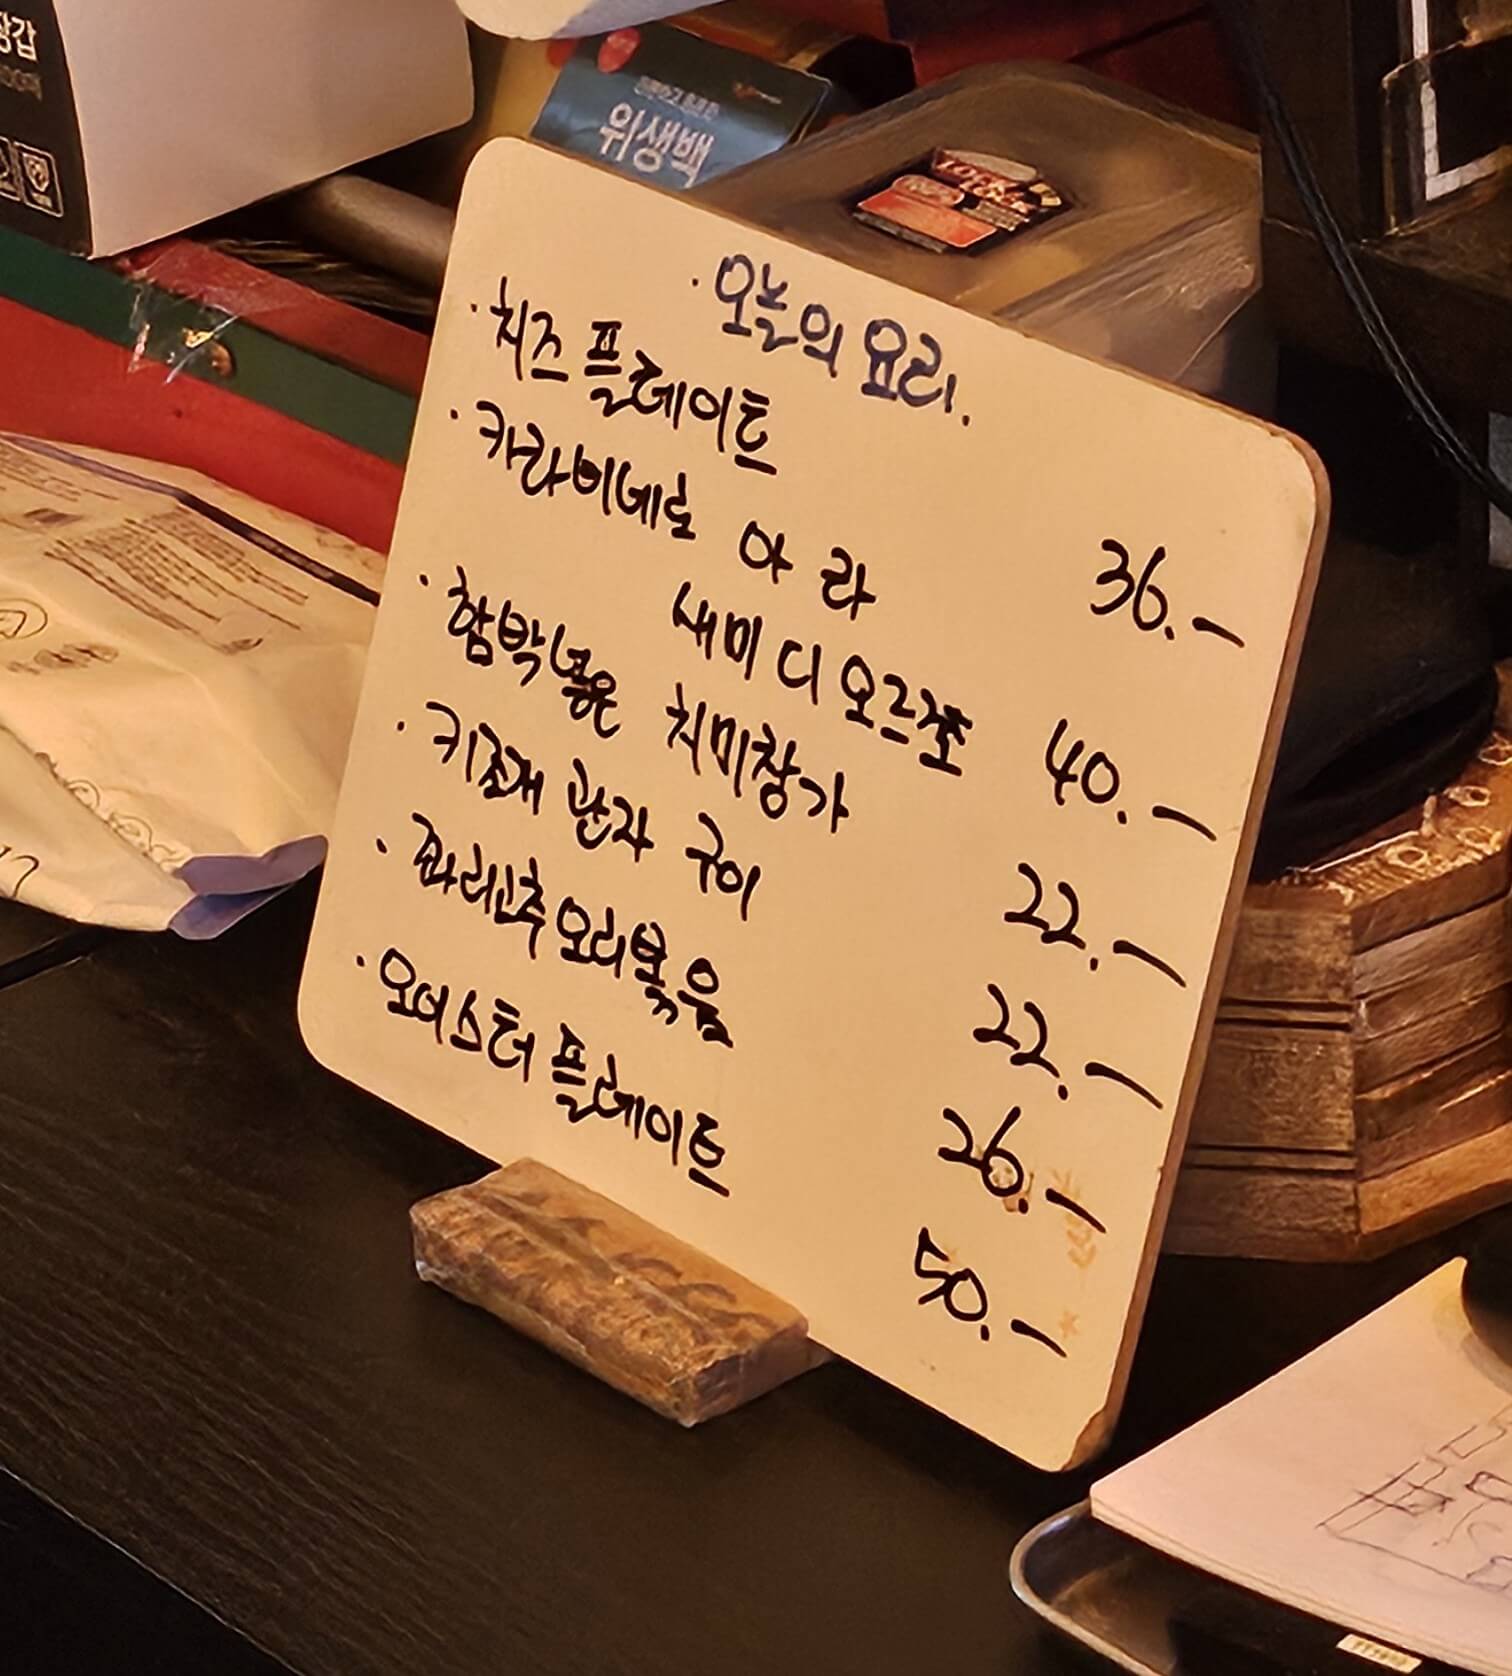 장갑
위생백
LOCK
LOCK
· 오늘의 요리.
· 치즈 플레이트 36.-
· 카라비네로 아 라
새미 디 오르조 40.-
· 함박넣은 치미창가 22.-
· 키조개 관자 구이 22.-
· 꽈리고추 오리볶음 26.-
· 오이스터 플레이트 50.-